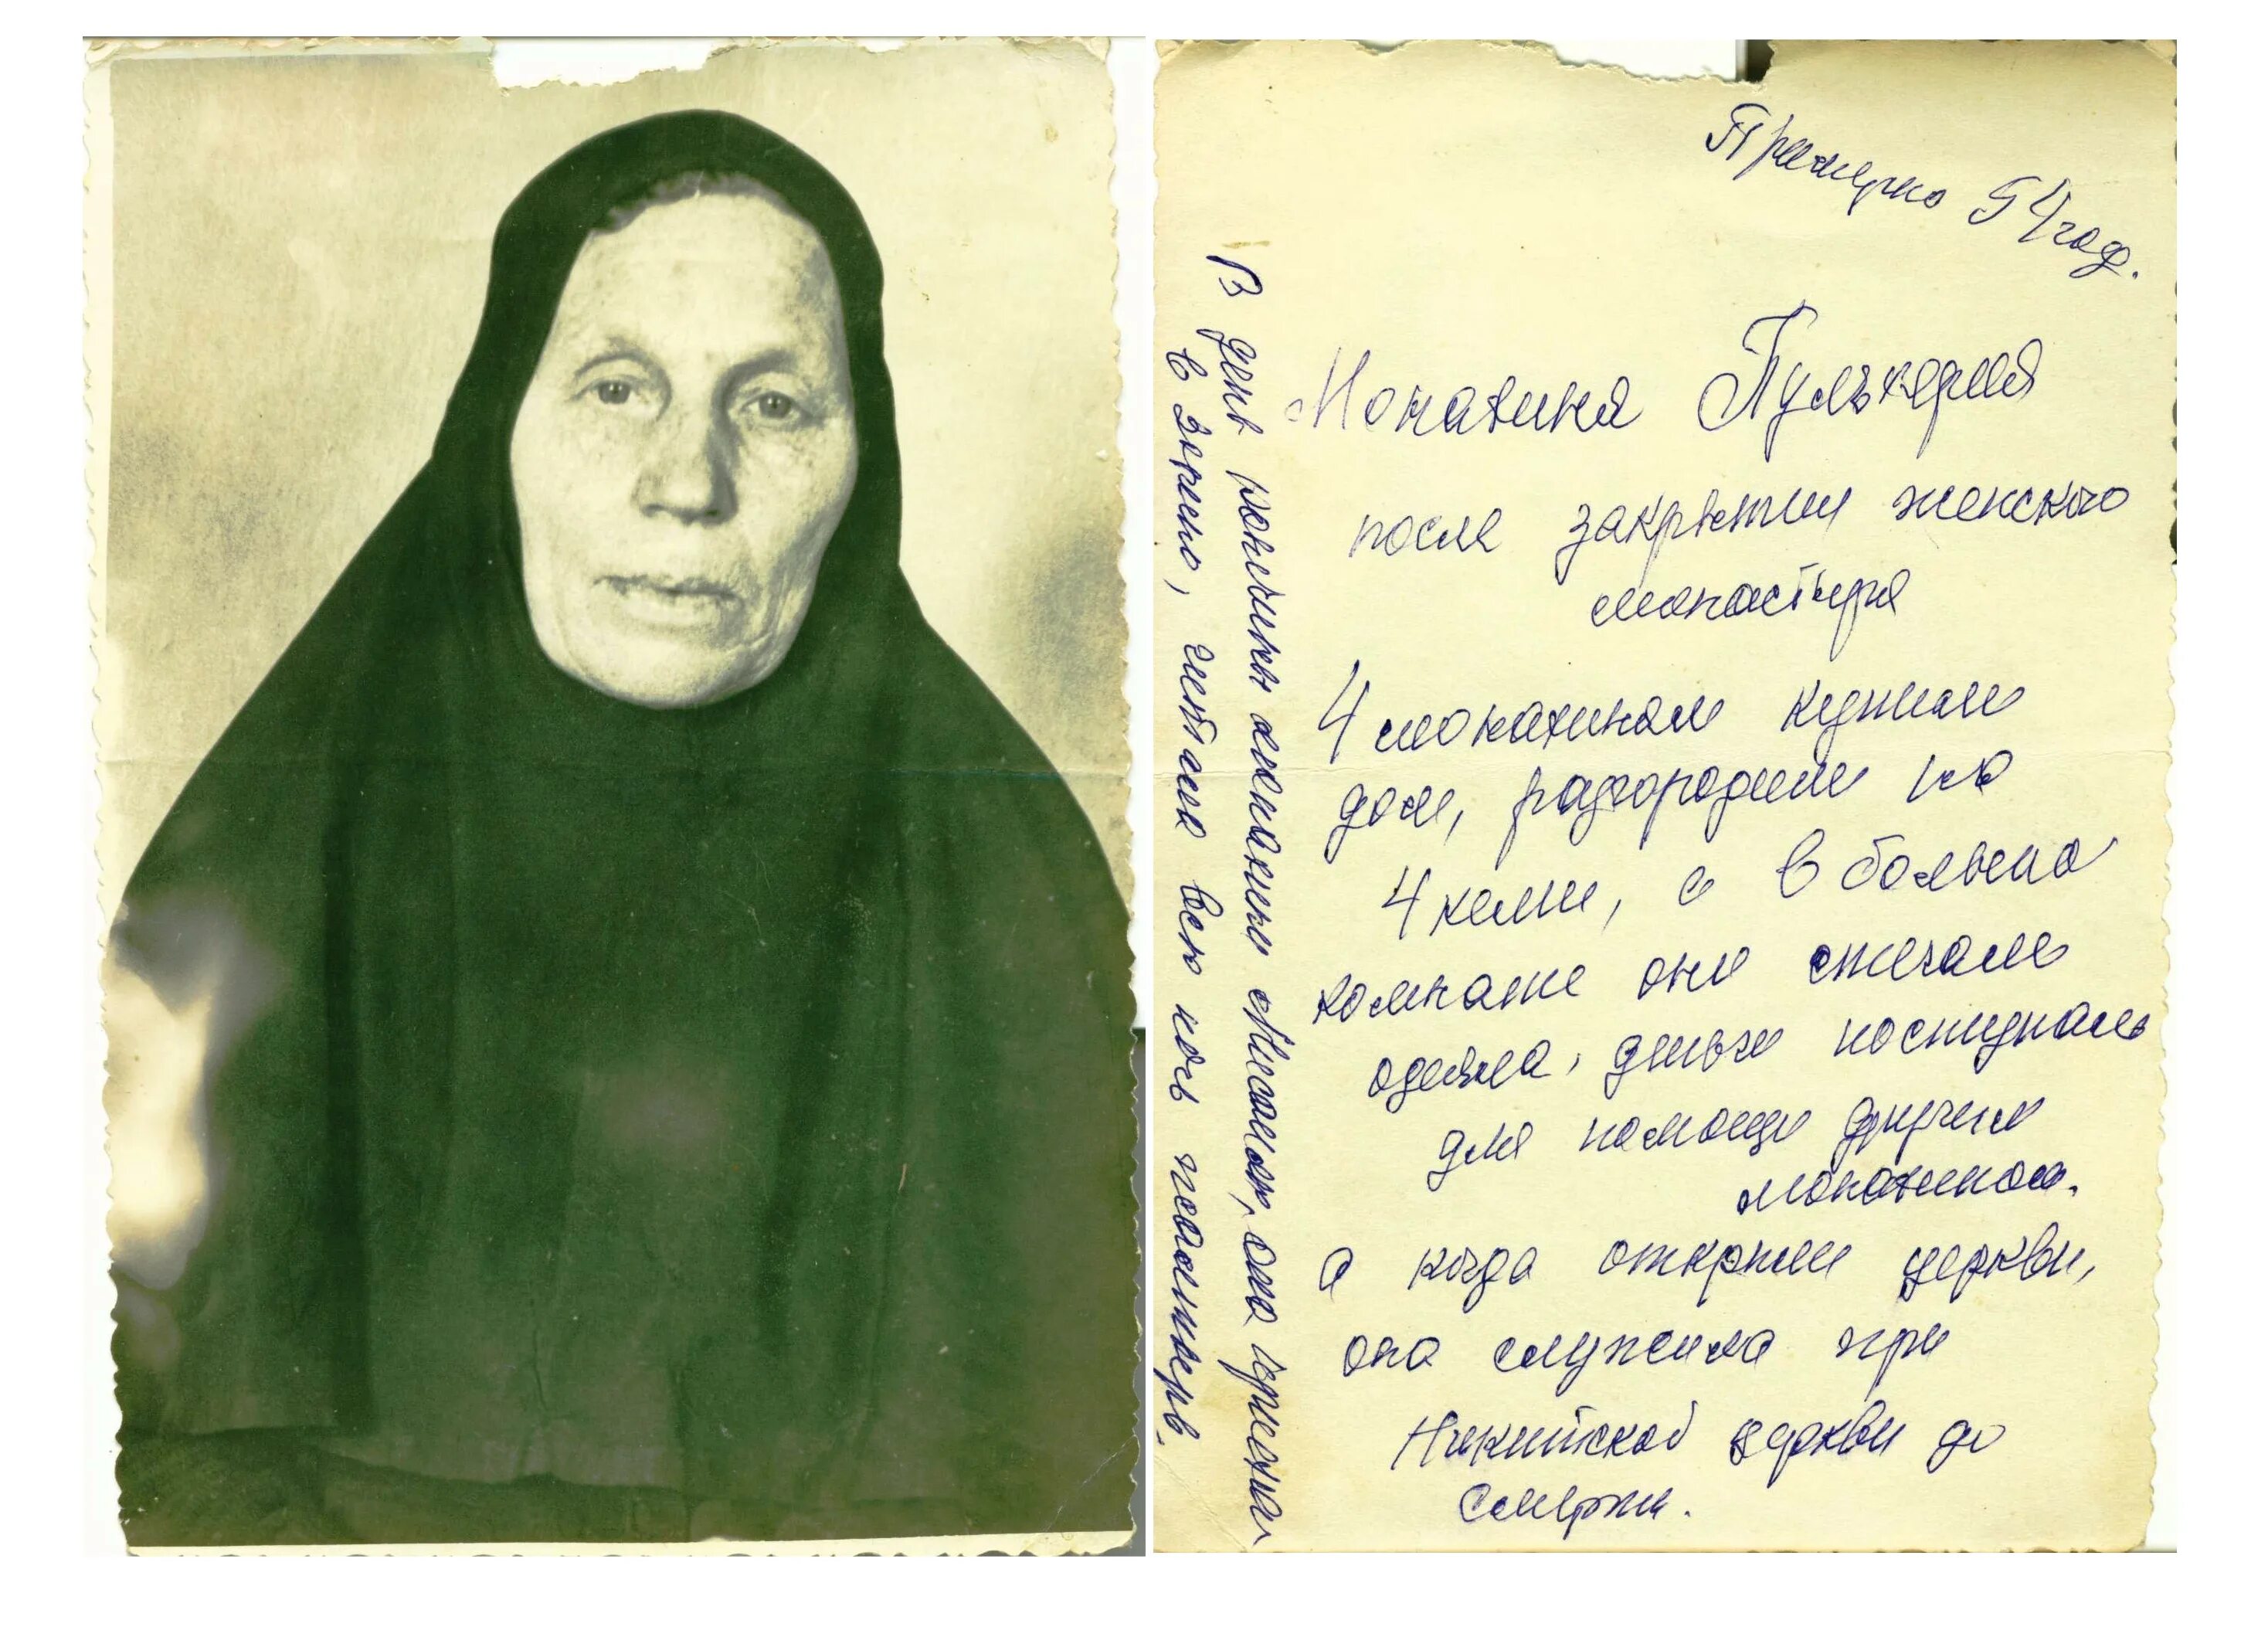 Примерно 54 год.
Монахиня Пульхерия
после закрытия женского
монастыря
4 монахиням купили
дом, разгородили на
4 келии, а в большой
комнате они стегали
одеяла, деньги поступали
для помощи другим
монахиням.
а когда открыли церкви,
она служила при
Никитской церкви до
смерти.
В день кончины она приехала
в читала всю ночь псалтирь.